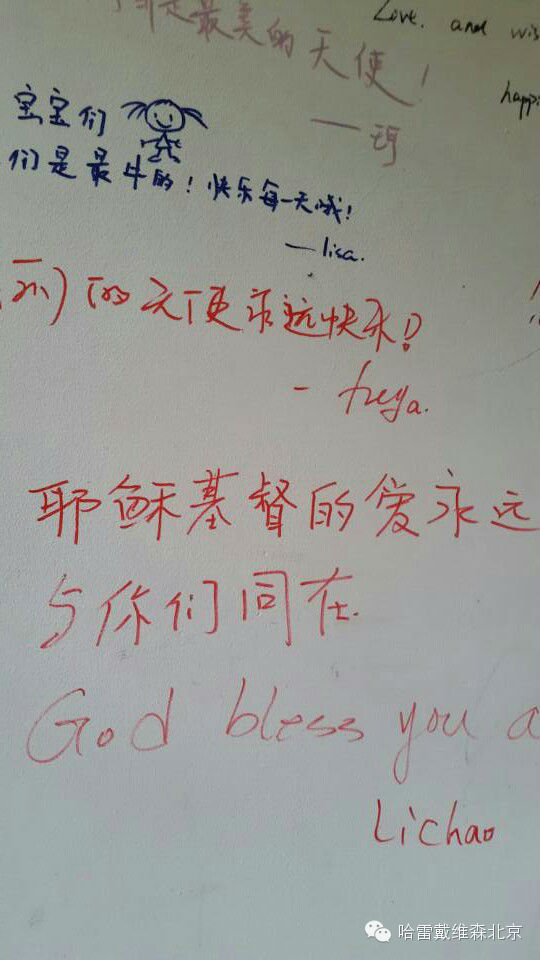 是最美的天使!
Love. and wis
happi
——珂
宝宝们
们是最牛的!快乐每一天哦!
——lisa.
的天使永远快乐!
- freya.
耶稣基督的爱永远
与你们同在.
God bless you a
Lichao
哈雷戴维森北京